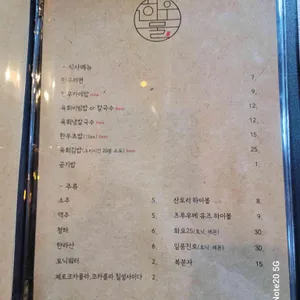 - 식사메뉴
한우라면 7,
한우카레밥 9,
육회비빔밥 or 칼국수 12,
육회냉칼국수 12,
한우초밥 15,
육회김밥 25,
공기밥 1,
- 주류
소주 5,
맥주 5,
청하 6,
한라산 6,
토닉워터 2,
제로코카콜라, 코카콜라, 칠성사이다 2,
산토리 하이볼 8,
츠루우메 유즈 하이볼 9,
화요25(토닉, 레몬) 30,
일품진로(토닉, 레몬) 30,
복분자 15,
Note20 5G